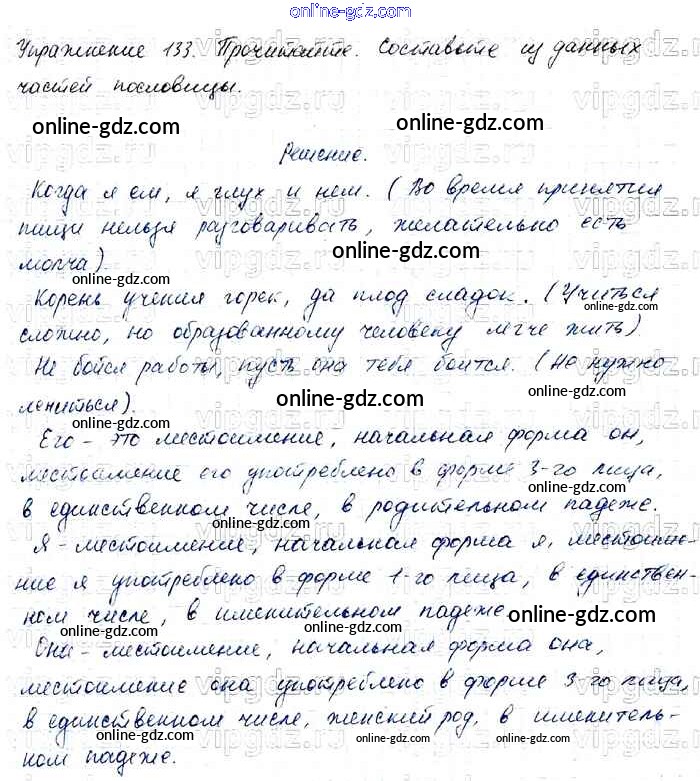 online-gdz.com
Упражнение 133. Прочитайте. Составьте из данных
частей пословицы.
online-gdz.com
online-gdz.com
Решение.
Когда я ем, я глух и нем. (Во время принятия
пищи нельзя разговаривать, желательно есть
online-gdz.com
молча).
Корень учения горек, да плод сладок. (Учиться
сложно, но образованному человеку легче жить).
Не бойся работы, пусть она тебя боится. (Не нужно
online-gdz.com
лениться).
Его - это местоимение, начальная форма он,
online-gdz.com
местоимение его употреблено в форме 3-го лица,
в единственном числе, в родительном падеже.
online-gdz.com
Я - местоимение, начальная форма я, местоиме-
online-gdz.com
ние я употреблено в форме 1-го лица, в единствен-
ном числе, в именительном падеже
online-gdz.com
online-gdz.com
Она - местоимение, начальная форма она,
местоимение она употреблено в форме 3-го лица,
online-gdz.com
в единственном числе, женский род, в именитель-
online-gdz.com
ном падеже.
online-gdz.com